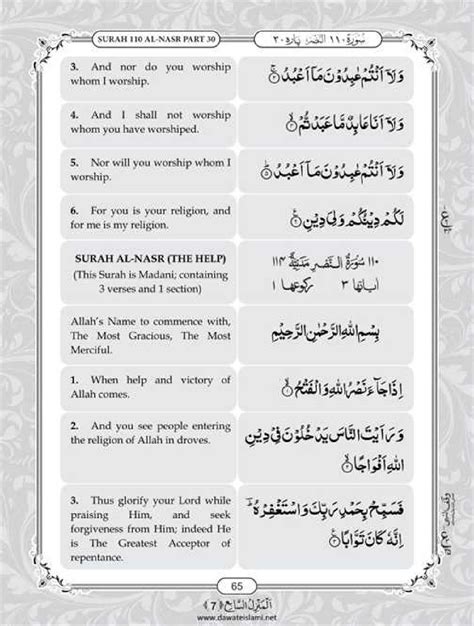 SURAH 110 AL-NASR PART 30
سُوۡرَۃ ١١٠ النَّصۡر پارہ ٣٠
3. And nor do you worship
whom I worship.
وَلَاۤ اَنۡتُمۡ عٰبِدُوۡنَ مَاۤ اَعۡبُدُ ۚ﴿٣﴾
4. And I shall not worship
whom you have worshiped.
وَلَاۤ اَنَا عَابِدٌ مَّا عَبَدۡتُّمۡ ۙ﴿٤﴾
5. Nor will you worship whom I
worship.
وَلَاۤ اَنۡتُمۡ عٰبِدُوۡنَ مَاۤ اَعۡبُدُ ؕ﴿٥﴾
6. For you is your religion, and
for me is my religion.
لَكُمۡ دِيۡنُكُمۡ وَلِىَ دِيۡنِ ﴿٦﴾
SURAH AL-NASR (THE HELP)
(This Surah is Madani; containing
3 verses and 1 section)
١١٠ سُوۡرَۃُ النَّصۡرِ مَدَنِيَّۃٌ ١١٤
اٰياتها ٣ ركوعها ١
Allah's Name to commence with,
The Most Gracious, The Most
Merciful.
بِسۡمِ اللّٰهِ الرَّحۡمٰنِ الرَّحِيۡمِ
1. When help and victory of
Allah comes.
اِذَا جَآءَ نَصۡرُ اللّٰهِ وَالۡفَتۡحُ ۙ﴿١﴾
2. And you see people entering
the religion of Allah in droves.
وَرَاَيۡتَ النَّاسَ يَدۡخُلُوۡنَ فِىۡ دِيۡنِ
اللّٰهِ اَفۡوَاجًا ۙ﴿٢﴾
3. Thus glorify your Lord while
praising Him, and seek
forgiveness from Him; indeed He
is The Greatest Acceptor of
repentance.
فَسَبِّحۡ بِحَمۡدِ رَبِّكَ وَاسۡتَغۡفِرۡهُ ؕؔ
اِنَّهٗ كَانَ تَوَّابًا ﴿٣﴾
65
اَلۡمَنۡزِلُ السَّابِع ﴿7﴾
www.dawateislami.net